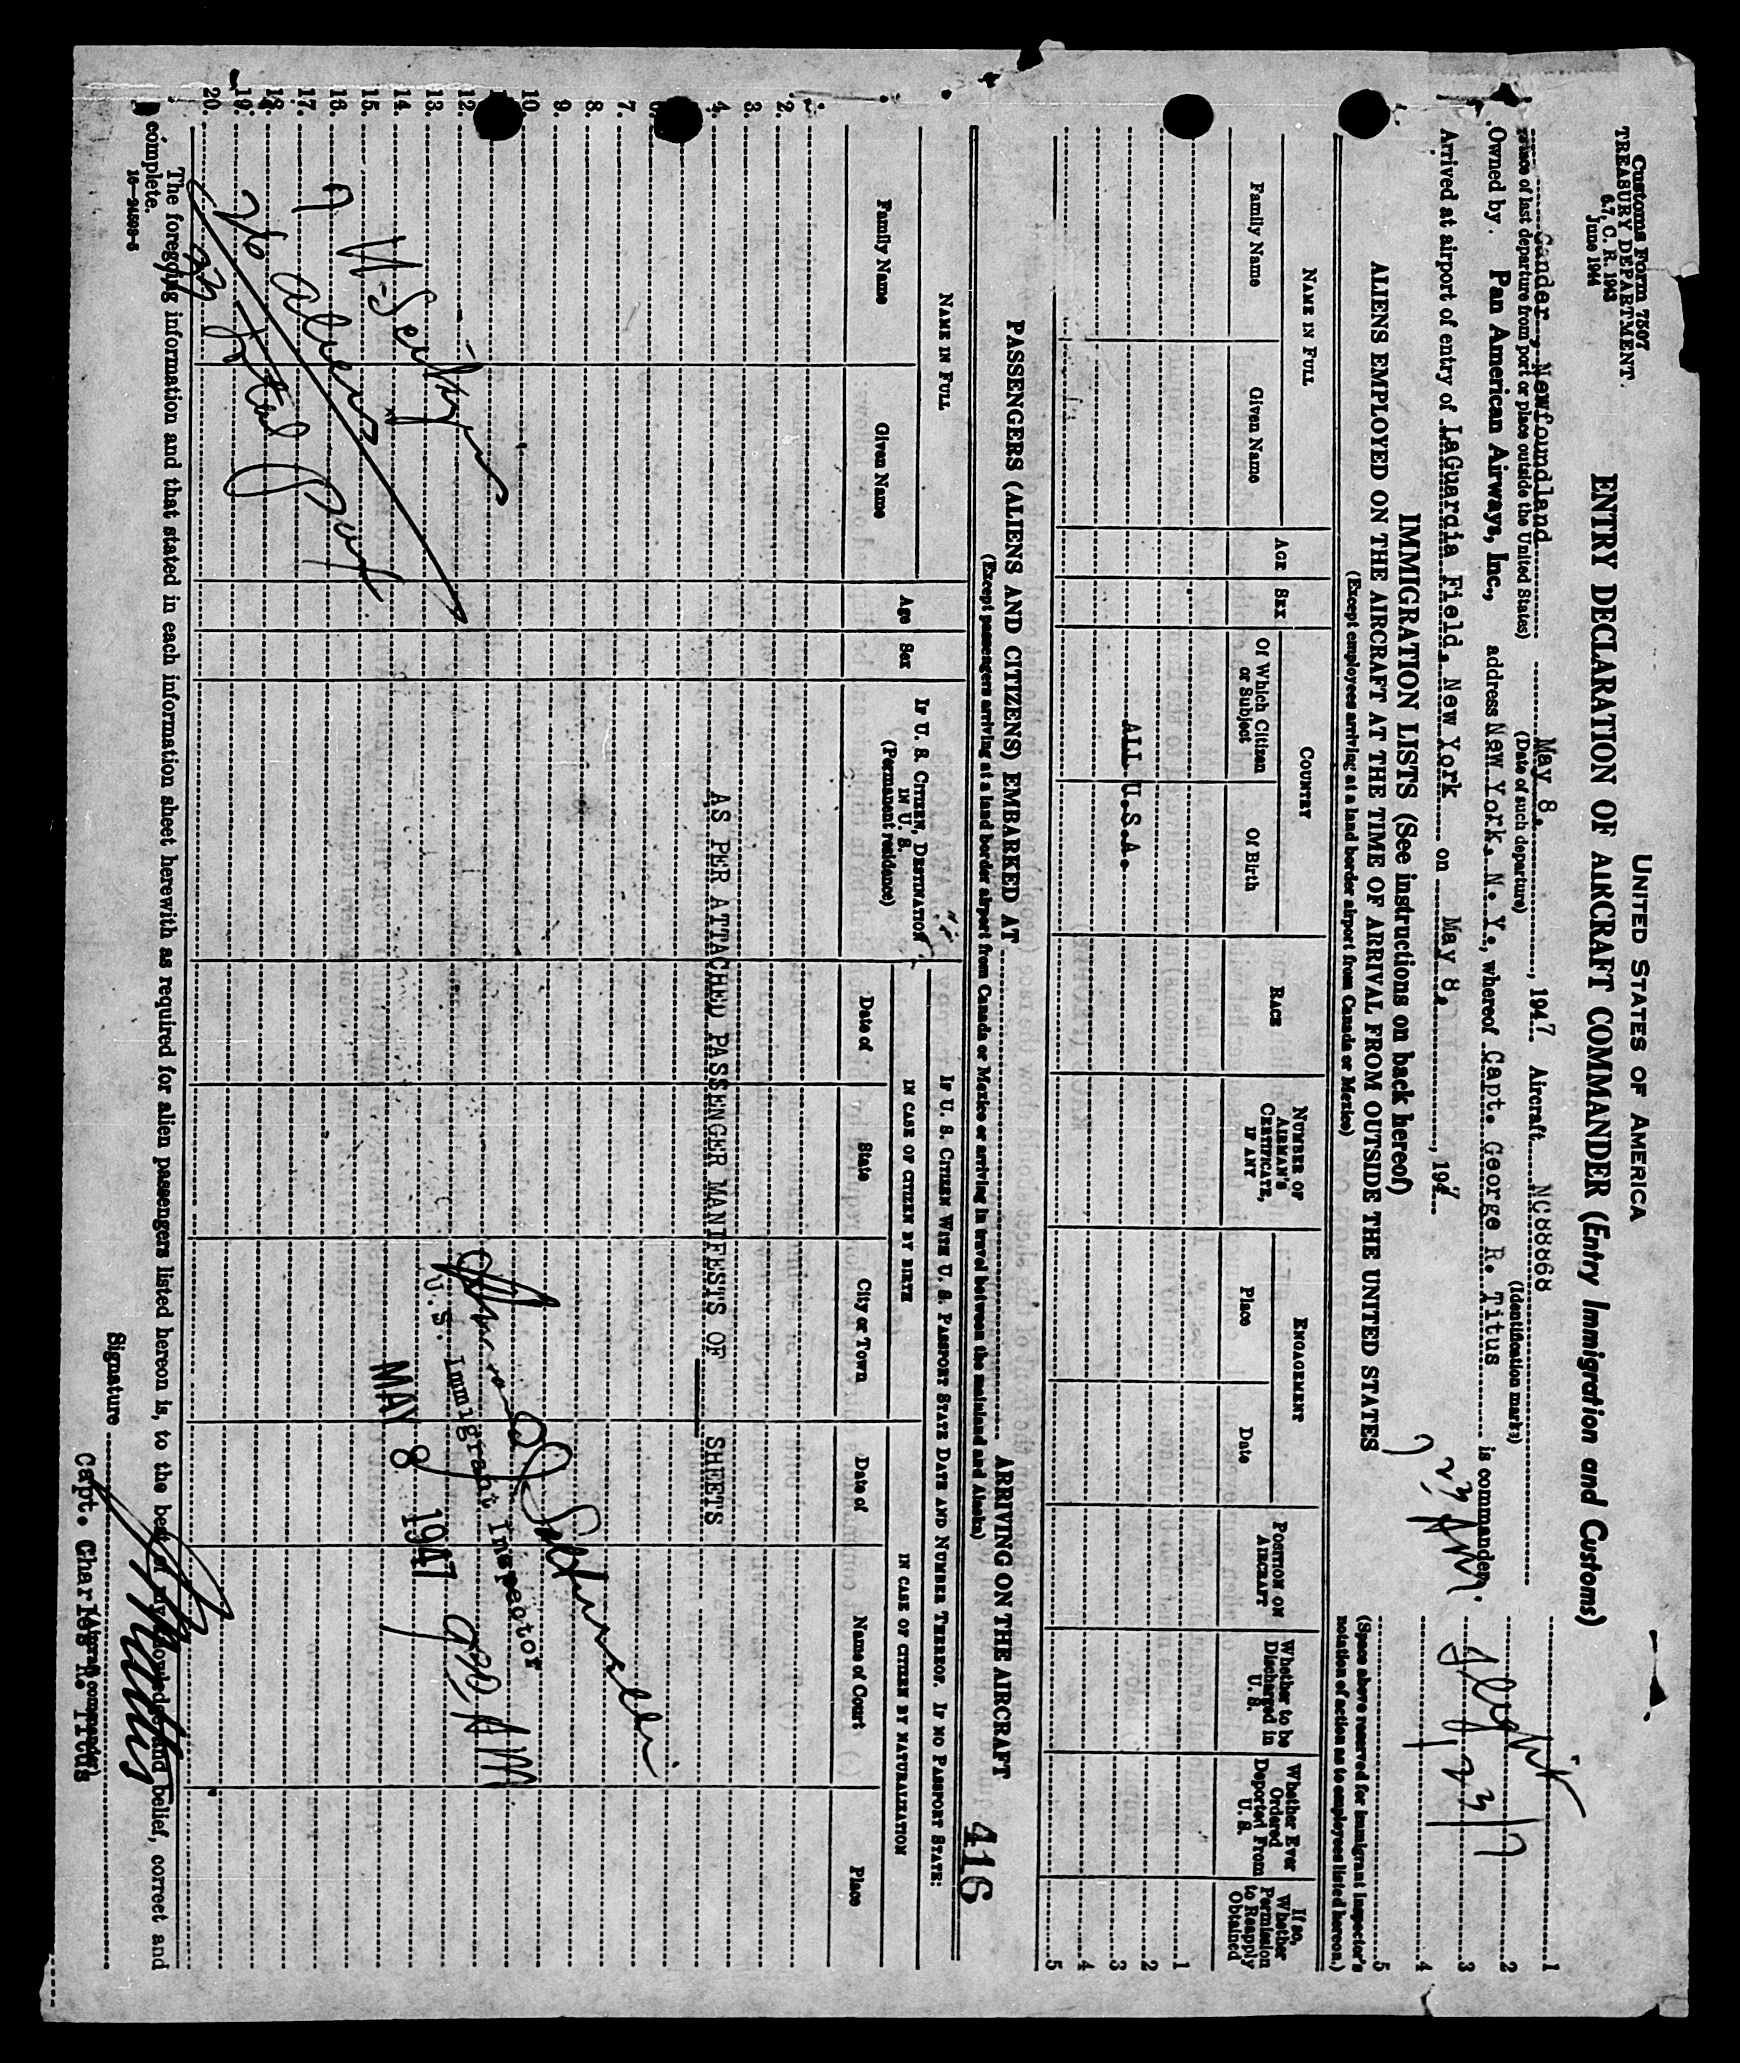 Customs Form 7507
TREASURY DEPARTMENT.
6.7, C. R. 1943
June 1944
UNITED STATES OF AMERICA
ENTRY DECLARATION OF AIRCRAFT COMMANDER (Entry Immigration and Customs)
Gander, Newfoundland May 8, 1947. Aircraft NC88868
(Name of last departure from port or place outside the United States) (Date of such departure) (Identification marks)
Owned by Pan American Airways, Inc., address New York, N. Y., whereof Capt. George R. Titus is commander,
Arrived at airport of entry of LaGuardia Field, New York on May 8, 1947
1
2
3
4
5
(Space above reserved for immigrant inspector's
notation of action as to employees listed hereon.)
IMMIGRATION LISTS (See instructions on back hereof)
ALIENS EMPLOYED ON THE AIRCRAFT AT THE TIME OF ARRIVAL FROM OUTSIDE THE UNITED STATES
(Except employees arriving at a land border airport from Canada or Mexico)
NAME IN FULL
Family Name
Given Name
AGE
SEX
COUNTRY
Of Which Citizen or Subject
Of Birth
RACE
NUMBER OF AIRMAN'S CERTIFICATE, IF ANY
ENGAGEMENT
Place
Date
POSITION ON AIRCRAFT
Whether to be Discharged in U. S.
Whether Ever Ordered Deported From U. S.
If so, Whether Permission to Reapply Obtained
1
2
ALL U.S.A.
3
4
5
PASSENGERS (ALIENS AND CITIZENS) EMBARKED AT ARRIVING ON THE AIRCRAFT
416
(Except passengers arriving at a land border airport from Canada or Mexico or arriving in travel between the mainland and Alaska)
NAME IN FULL
Family Name
Given Name
Age
Sex
IF U. S. CITIZEN, DESTINATION IN U. S.
(Permanent residence)
IF U. S. CITIZEN WITH U. S. PASSPORT STATE DATE AND NUMBER THEREOF. IF NO PASSPORT STATE:
IN CASE OF CITIZEN BY BIRTH
Date of
State
City or Town
IN CASE OF CITIZEN BY NATURALIZATION
Date of
Name of Court
Place
2.
3.
4.
AS PER ATTACHED PASSENGER MANIFESTS OF SHEETS
7.
8.
9.
10.
12.
13.
14.
15.
16.
17.
18.
19.
20.
aliens
23 total
U.S. Immigrant Inspector
MAY 8 1947
The foregoing information and that stated in each information sheet herewith as required for alien passengers listed hereon is, to the best of my knowledge and belief, correct and
complete.
16—24598-5
Signature
(Aircraft commander)
Capt. Charles R. Titus